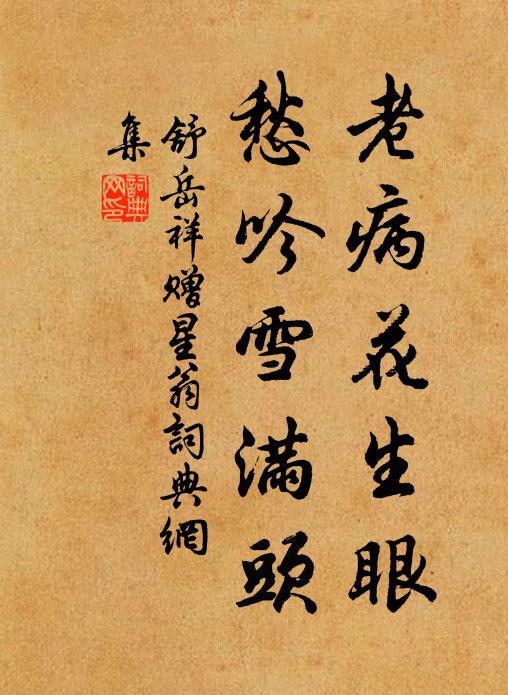 老病花生眼
愁吟雪满頭
舒岳祥赠星翁詞典網
集
詞典
网印